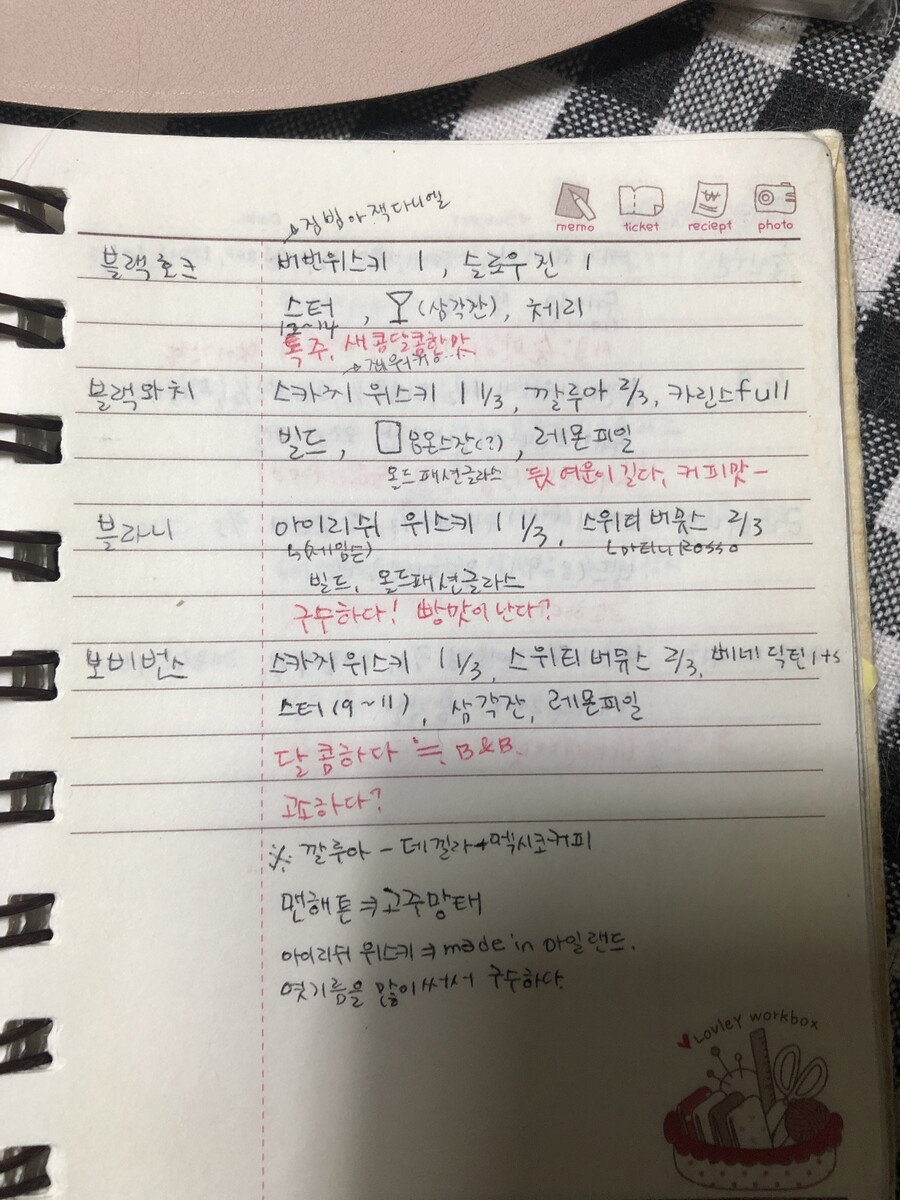 memo ticket reciept photo
짐빔 아 잭다니엘
블랙호크 버번위스키 1, 슬로우진 1
스터, (삼각잔), 체리
12~14
독주, 새콤달콤한맛
블랙와치 스카치 위스키 1 1/3, 깔루아 2/3, 카린스 full
빌드, 온스잔(?), 레몬피일
올드패션글라스 뒷 여운이 길다, 커피맛-
블라니 아이리쉬 위스키 1 1/3, 스위티버뭇스 2/3
(제임슨) Rosso
빌드, 올드패션글라스
구수하다! 빵맛이 난다?
보비번스 스카치위스키 1 1/3, 스위티버뮤스 2/3, 베네딕틴 1ts
스터(9~11), 삼각잔, 레몬피일
달콤하다 ≒ B&B
고소하다?
※ 깔루아 - 데낄라+멕시코커피
맨해튼 ⇒ 고주망태
아이리쉬 위스키 ⇒ made in 아일랜드.
엿기름을 많이써서 구수하다.
Lovley workbox